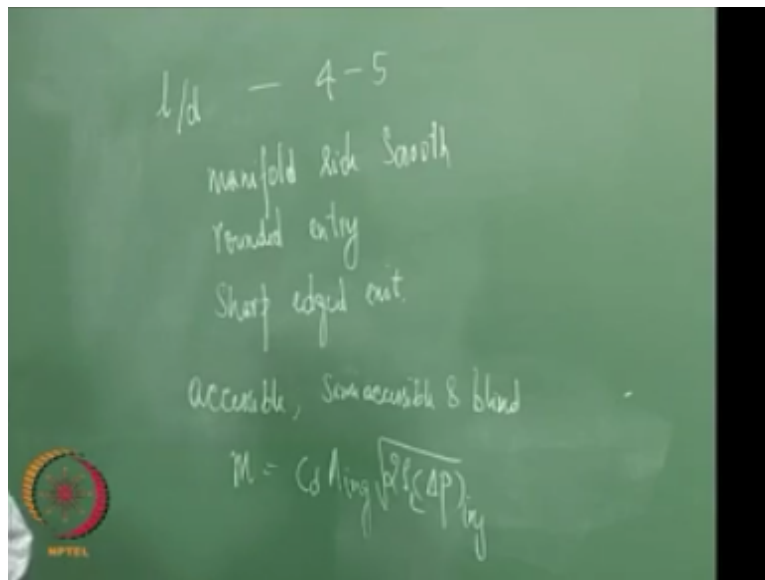 l/d — 4-5
manifold side Smooth
rounded entry
Sharp edged exit.
accessible, Semiaccessible & blind
ṁ = Cd Ainj √2ρ(Δp)inj
NPTEL